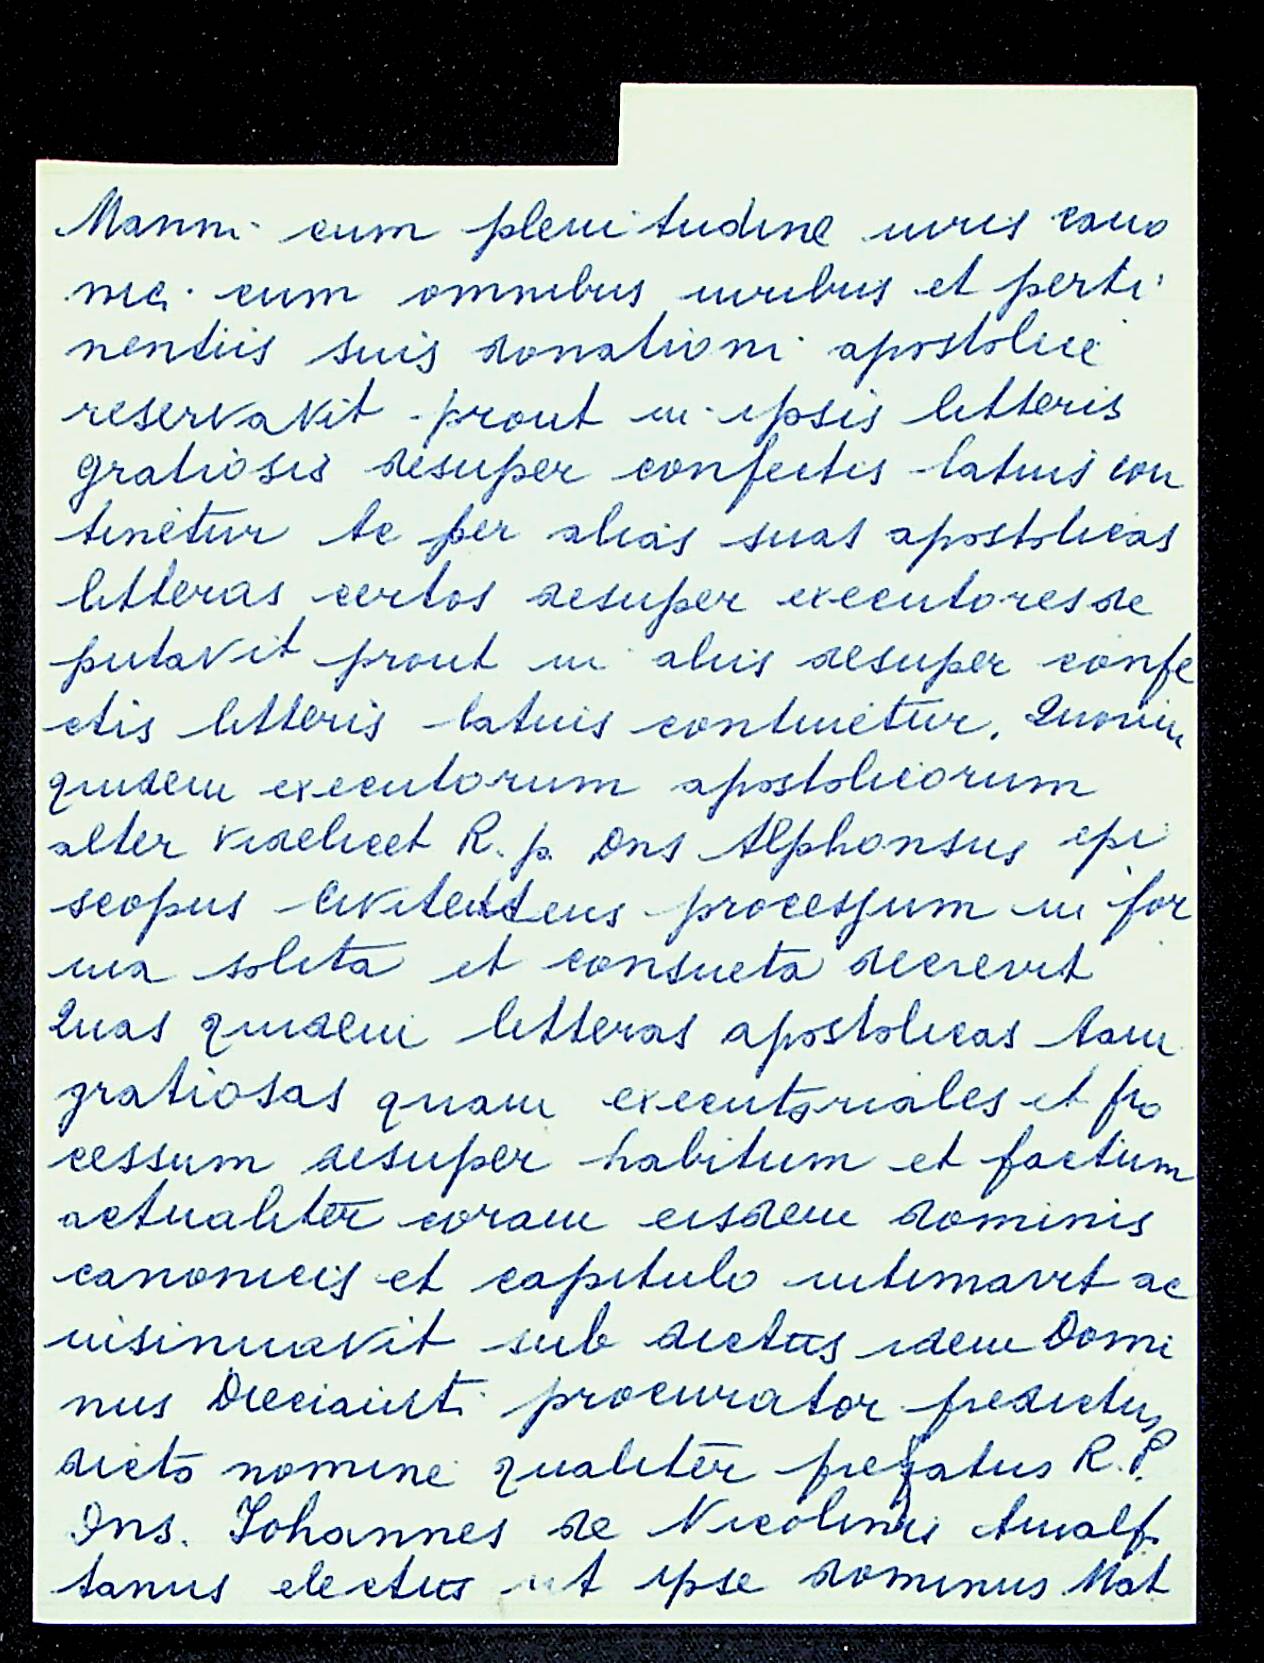 Manni cum plenitudine iuris cano
nici cum omnibus iuribus et perti
nentiis suis donationi apostolice
reservavit prout in ipsis litteris
gratiosis desuper confectis latius con
tinetur ac per alias suas apostolicas
litteras certos desuper executores de
putavit prout in aliis desuper confe
ctis litteris latius continetur. Quorum
quidem executorum apostolicorum
alter videlicet R. p. Dns Alphonsus epi
scopus processum in for
ma solita et consueta decrevit
Quas quidem litteras apostolicas tam
gratiosas quam executoriales et pro
cessum desuper habitum et factum
actualiter coram eisdem dominis
canonicis et capitulo intimavit ac
insinuavit sub dictus idem Domi
nus procurator predictus
dicto nomine qualiter prefatus R. P.
Dns. Iohannes de Nicolinis Amalf
tanus electus ut ipse dominus Mat